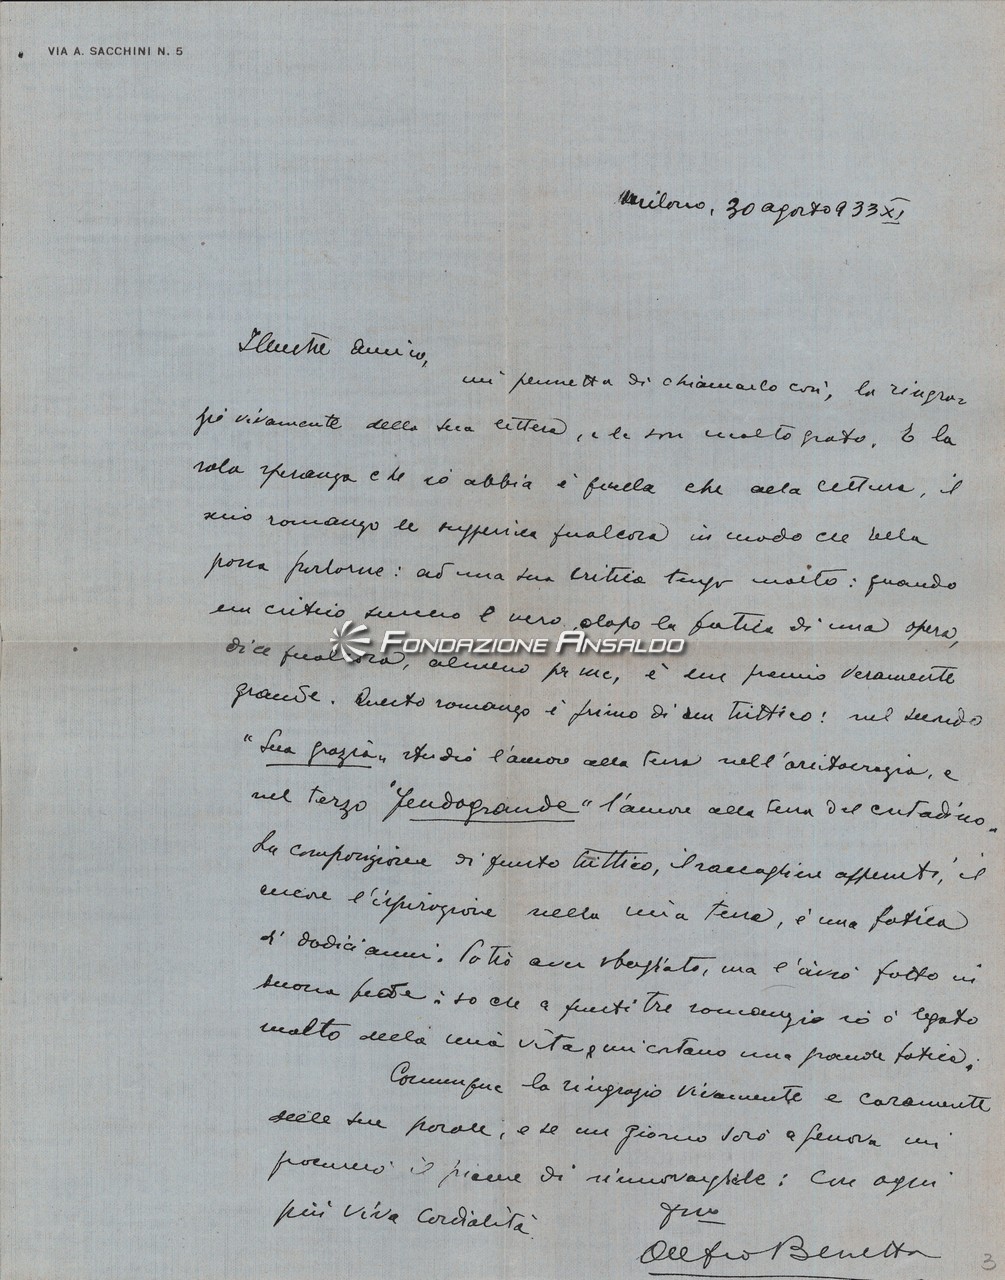 VIA A. SACCHINI N. 5
Milano, 30 agosto 933 XI
Illustre amico,
mi permetta di chiamarlo così, la ringra-
zio vivamente della sua lettera, e le son molto grato. E la
sola speranza che io abbia è quella che alla lettura, il
mio romanzo le suggerisca qualcosa in modo che Ella
possa parlarne: ad una sua critica tengo molto: quando
un critico sincero e vero, dopo la fatica di una opera,
dice qualcosa, almeno per me, è un premio veramente
grande. Questo romanzo è primo di un trittico: nel secondo
"Sua grazia" studio l'amore alla terra nell'aristocrazia, e
nel terzo "Feudogrande" l'amore alla terra del contadino.
La composizione di questo trittico, il raccogliere appunti, il
l'ispirazione nella mia terra, è una fatica
di dodici anni. Potrò aver sbagliato, ma l'avrò fatto in
buona fede: so che a questi tre romanzi io ò legato
molto della mia vita e mi costano una grande fatica.
Comunque la ringrazio vivamente e caramente
delle sue parole, e se un giorno sarò a Genova mi
procurerò il piacere di rinnovarglele: con ogni
più viva cordialità
suo
Alfio Beretta
3
FONDAZIONE ANSALDO